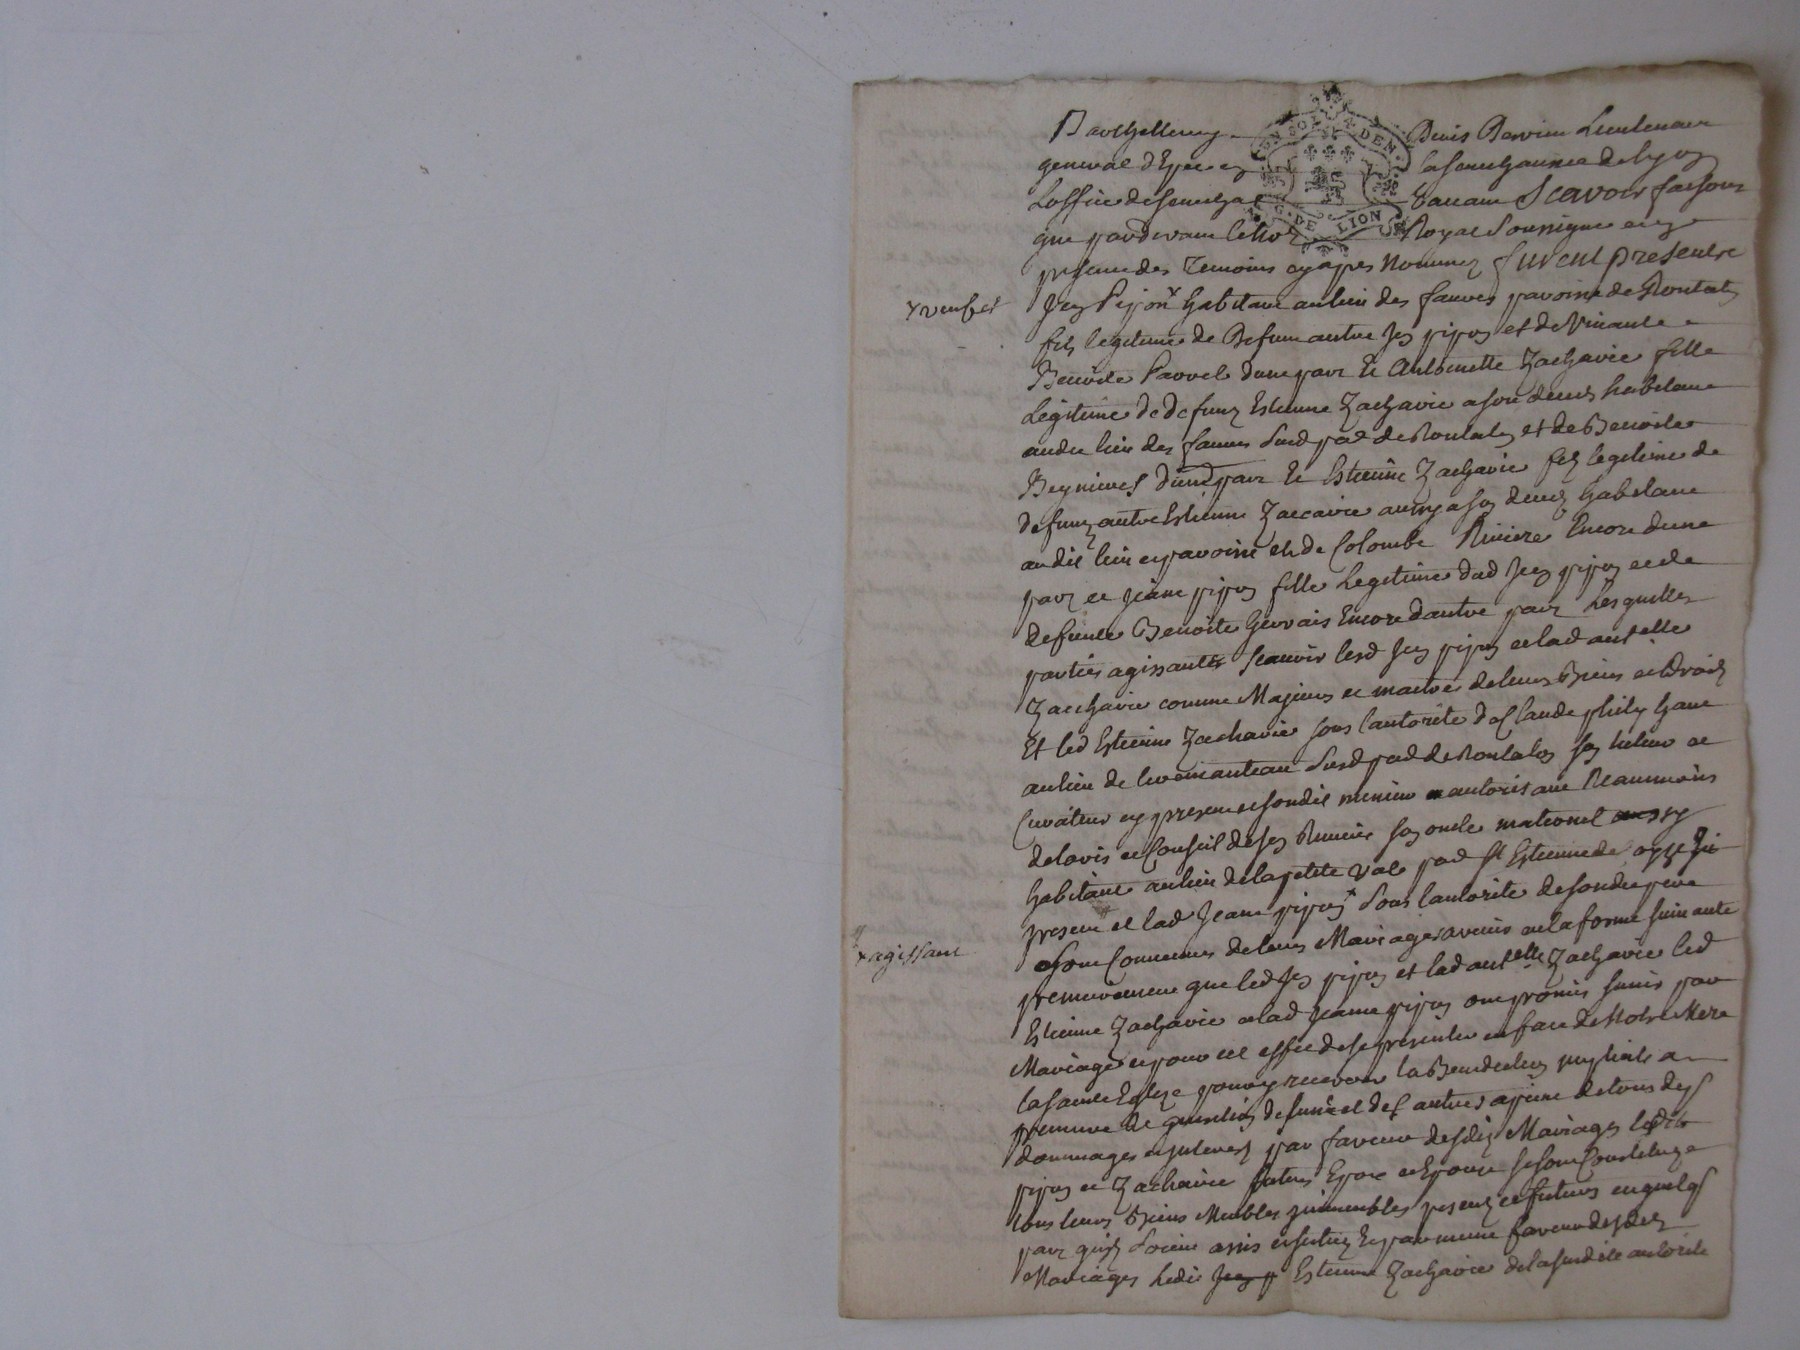 Barthellemy Denis Dervieu Lieutenant
general d'Epée en la senechaussee de Lyon
Loffice de senechal vacant Scavoir faisons
que pardevant le no.re Royal soussigne et en
presence des temoins cy apres nommez furent presents
x veuf et
Jean Pipon x habitant au lieu des fauves paroisse de Rontalon
fils legitime de defunt autre Jean pipon et de vivante
Benoite dune part Et Antoinette Zacharie fille
Legitime de defunt Estienne Zacharie a son deces habitant
audit lieu des fauves susd par de Rontalon et de Benoite
Beynieres dune part Et Estienne Zacharie fils legitime de
defunt autre Estienne Zaccarie aussy a son deces habitant
audit lieu et paroisse et de Colombe Riviere Encore dune
part et Jeane pipon fille Legitime dud Jean pipon et de
defunte Benoite Gervais Encore dautre part Lesquelles
parties agissantes scauoir lesd Jean pipon et lad ant.elle
Zaccharie comme Majeurs et maitres de leurs Biens et droits
Et led Estienne Zacharie sous lautorite de Claude philip habitant
au lieu de susd par de Rontalon son tuteur et
Curateur cy present et sondit mineur autorisant Neanmoins
de lavis et Conseil de Jean Riviere son oncle maternel aussy
habitant au lieu de la petite val par St Estienne de
x agissant
present et lad Jeane pipon x sous lautorite de sondit pere
sont Convenues de leurs Mariages avenir en la forme suivante
premierement que led Jean pipon et lad ant.elle Zacharie led
Estienne Zacharie et lad Jeanne pipon ont promis sunir par
Mariage et pour cet effet de se presenter en face de Notre Mere
la sainte Eglize pour y recevoir la Benediction nuptiale a
premiere Requisition de lune et des autres a peine de tous depens
dommages et interets par faveur desdits Mariages lesdits
pipon et Zacharie futurs Epoux et Epouse se sont Constitue
tous leurs Biens Meubles immeubles presents et futurs en quelq
part quils soient assis et situez Et par meme faveur desdits
Mariages Ledit Jean p Estienne Zacharie de la susdite autorite